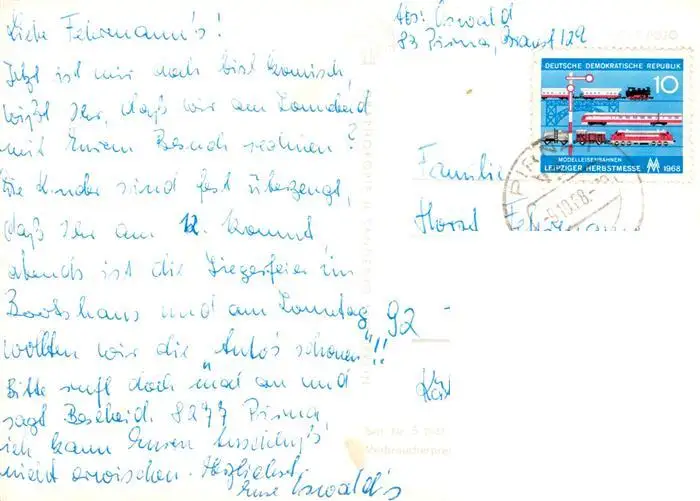 Liebe Fehrmann's!
Jetzt ist mir doch bist komisch,
wißt Ihr, daß wir am Sonnabend
mit Eurem Besuch rechnen?
Die Kinder sind fest überzeugt,
daß Ihr am 12. kommt,
abends ist die Siegerfeier im
Bootshaus und am Sonntag
wollten wir die "Auto's schonen"!!
Bitte ruft doch mal an und
sagt Bescheid. 8277 Pirna,
ich kann Euren Anschluß
nicht erwischen. Herzlichst
Eure Oswald's
Abs: Oswald
83 Pirna, 122
DEUTSCHE DEMOKRATISCHE REPUBLIK
10
MODELLEISENBAHNEN
LEIPZIGER HERBSTMESSE 1968
PIRNA
Familie
Horst
92